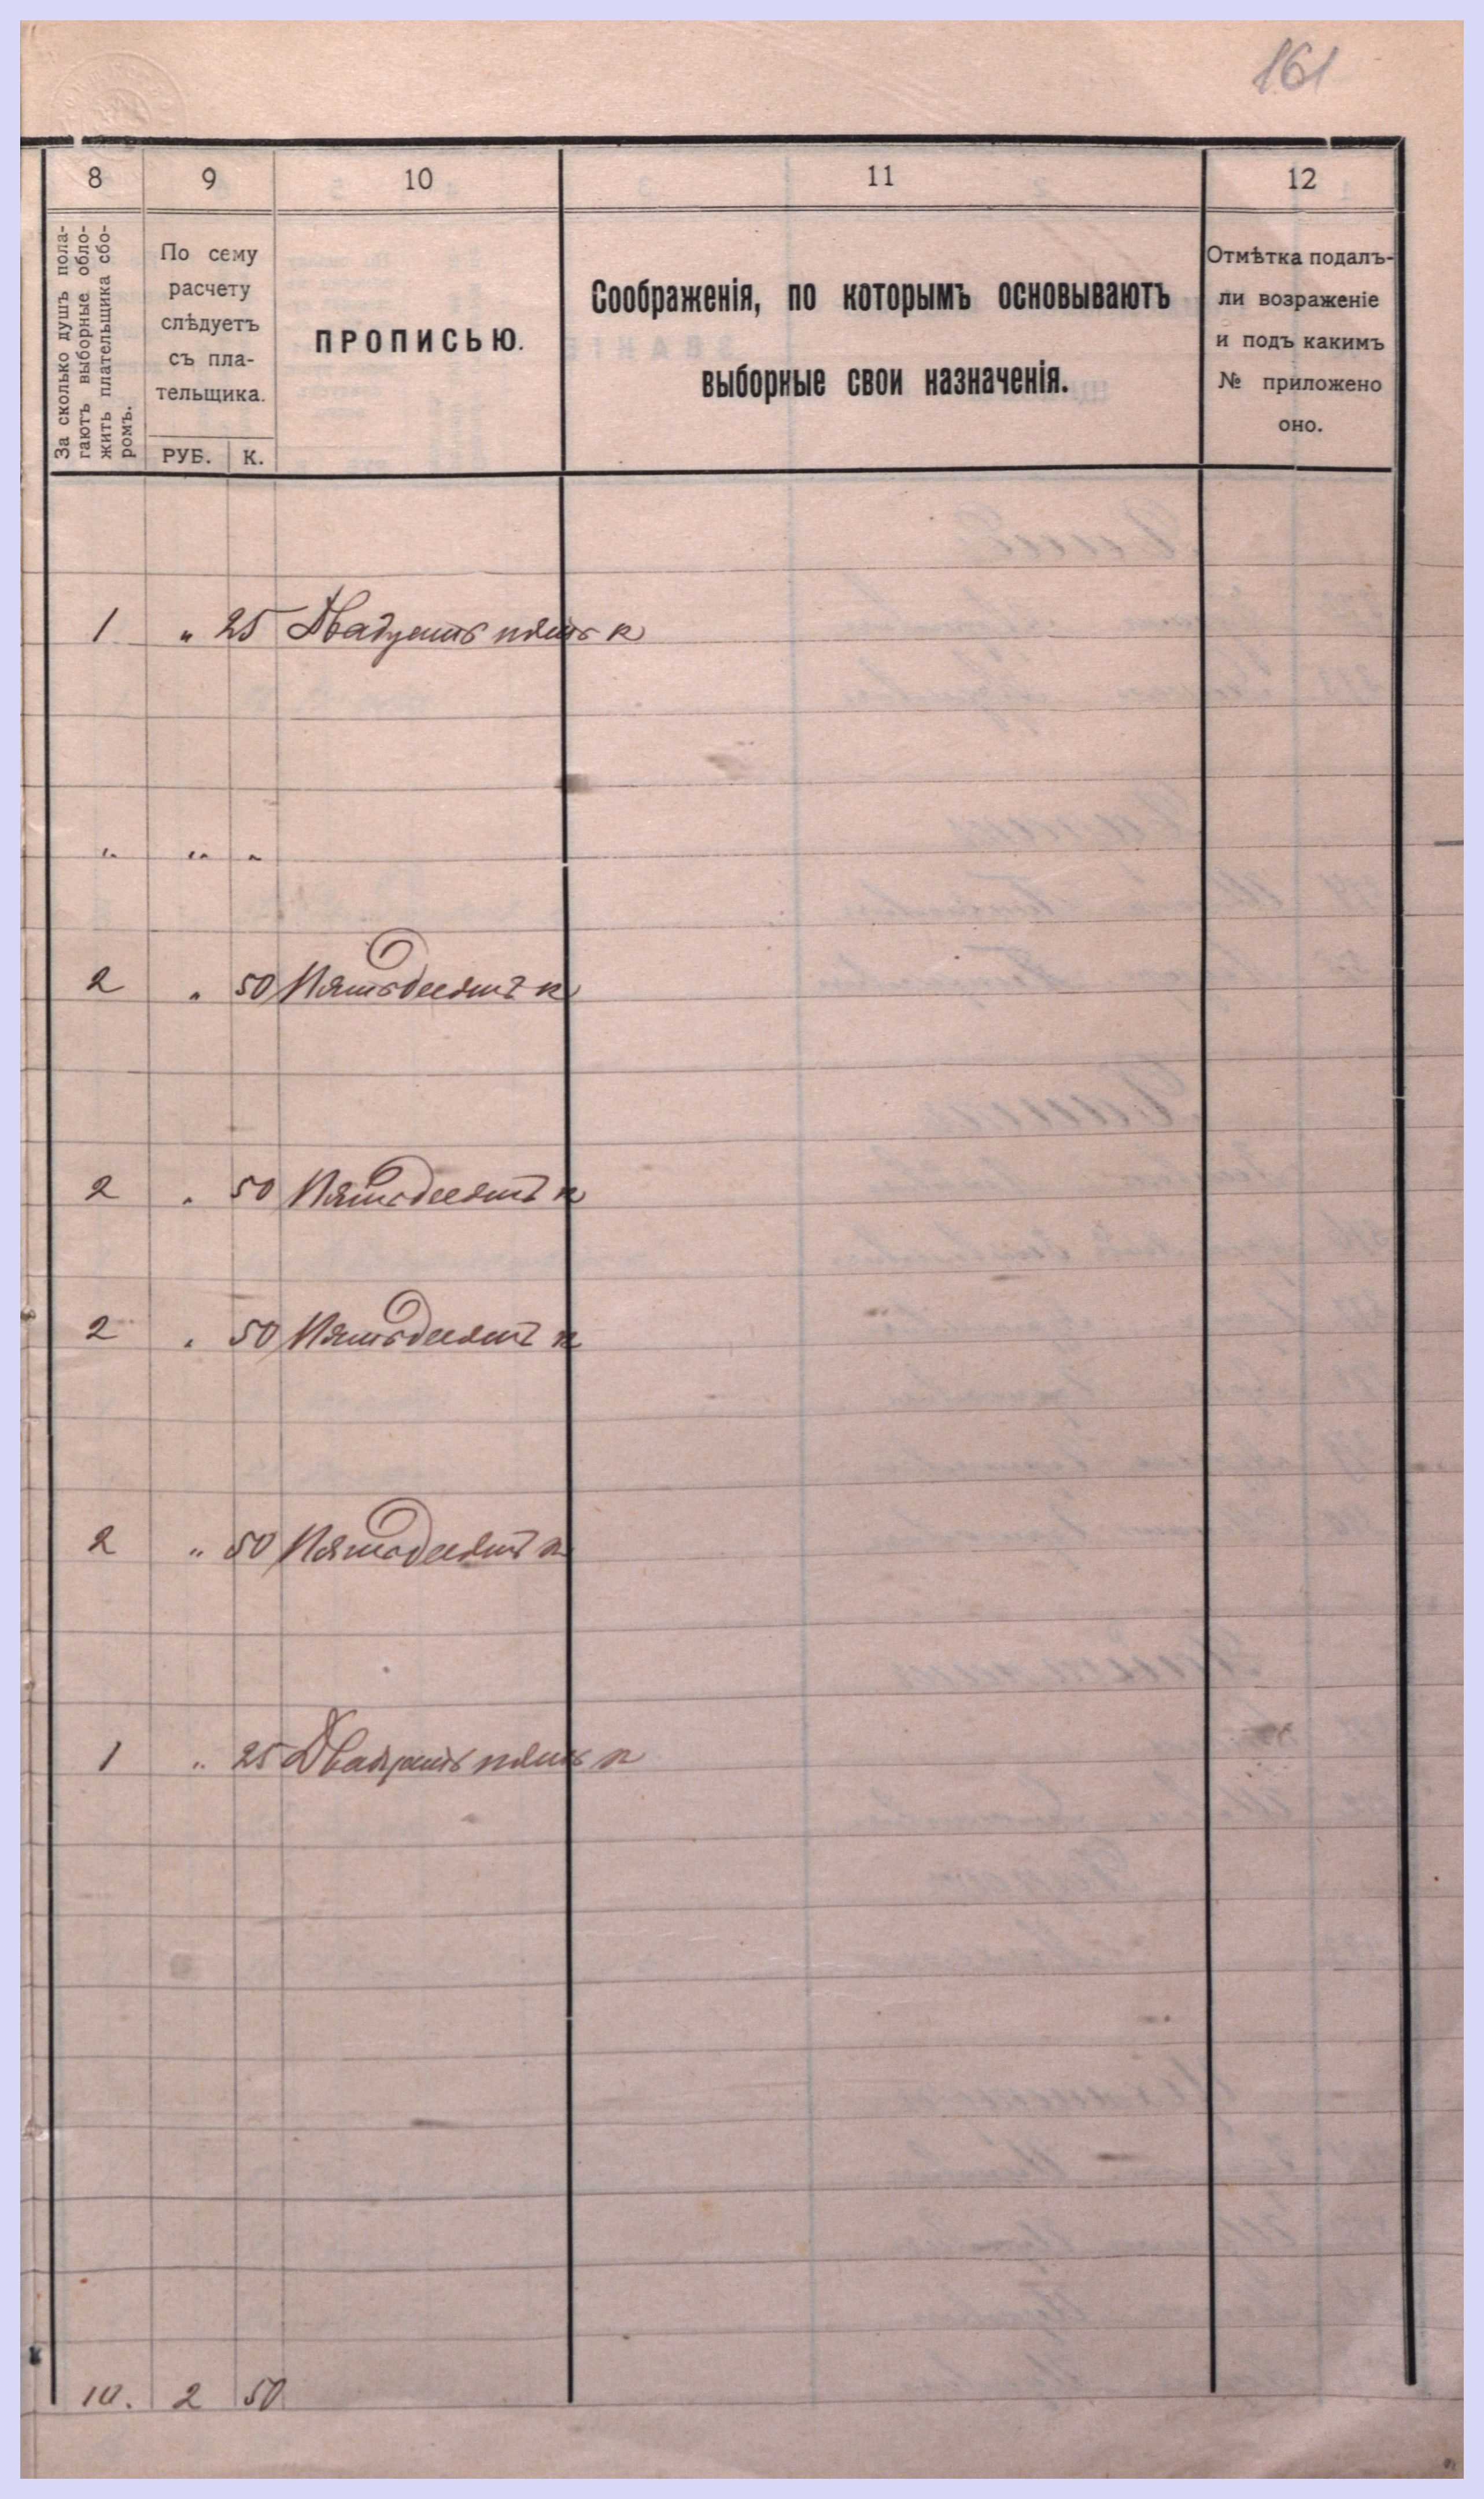 161
8 9 10 11 12
За сколько душъ пола-
гаютъ выборные обло-
жить плательщика сбо-
ромъ.
По сему
расчету
слѣдуетъ
съ пла-
тельщика.
РУБ. К.
ПРОПИСЬЮ.
Соображенія, по которымъ основываютъ
выборные свои назначенія.
Отмѣтка подалъ-
ли возраженіе
и подъ какимъ
№ приложено
оно.
1 " 25 Двадцать пять к
" " "
2 " 50 Пятьдесятъ к
2 " 50 Пятьдесятъ к
2 " 50 Пятьдесятъ к
2 " 50 Пятьдесятъ к
1 " 25 Двадцать пять к
10. 2 50